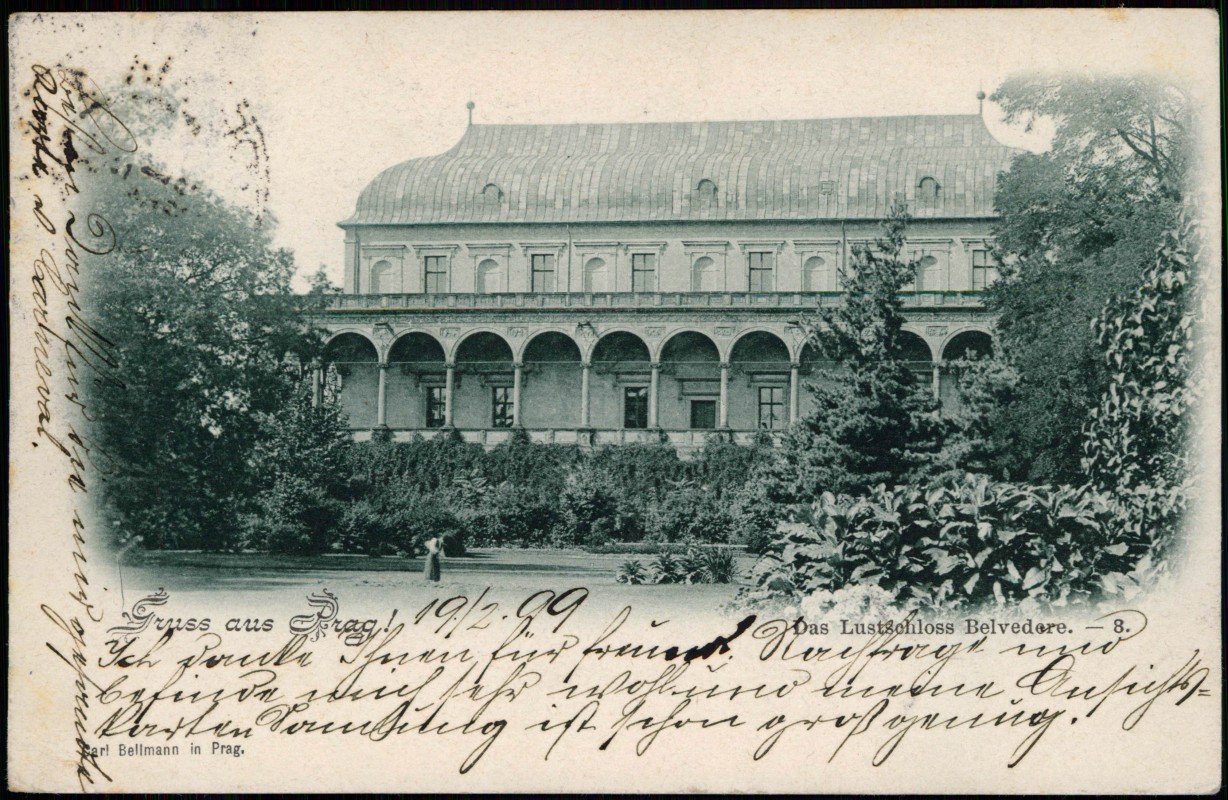 Gruss aus Prag! 19./2. 99
Das Lustschloss Belvedere. — 8.
Ich danke Ihnen für freund. Nachfrage und
befinde mich sehr wohl und meine Ansichts=
karten Sammlung ist schon groß genug.
Carl Bellmann in Prag.
und gefunde
Karneval.